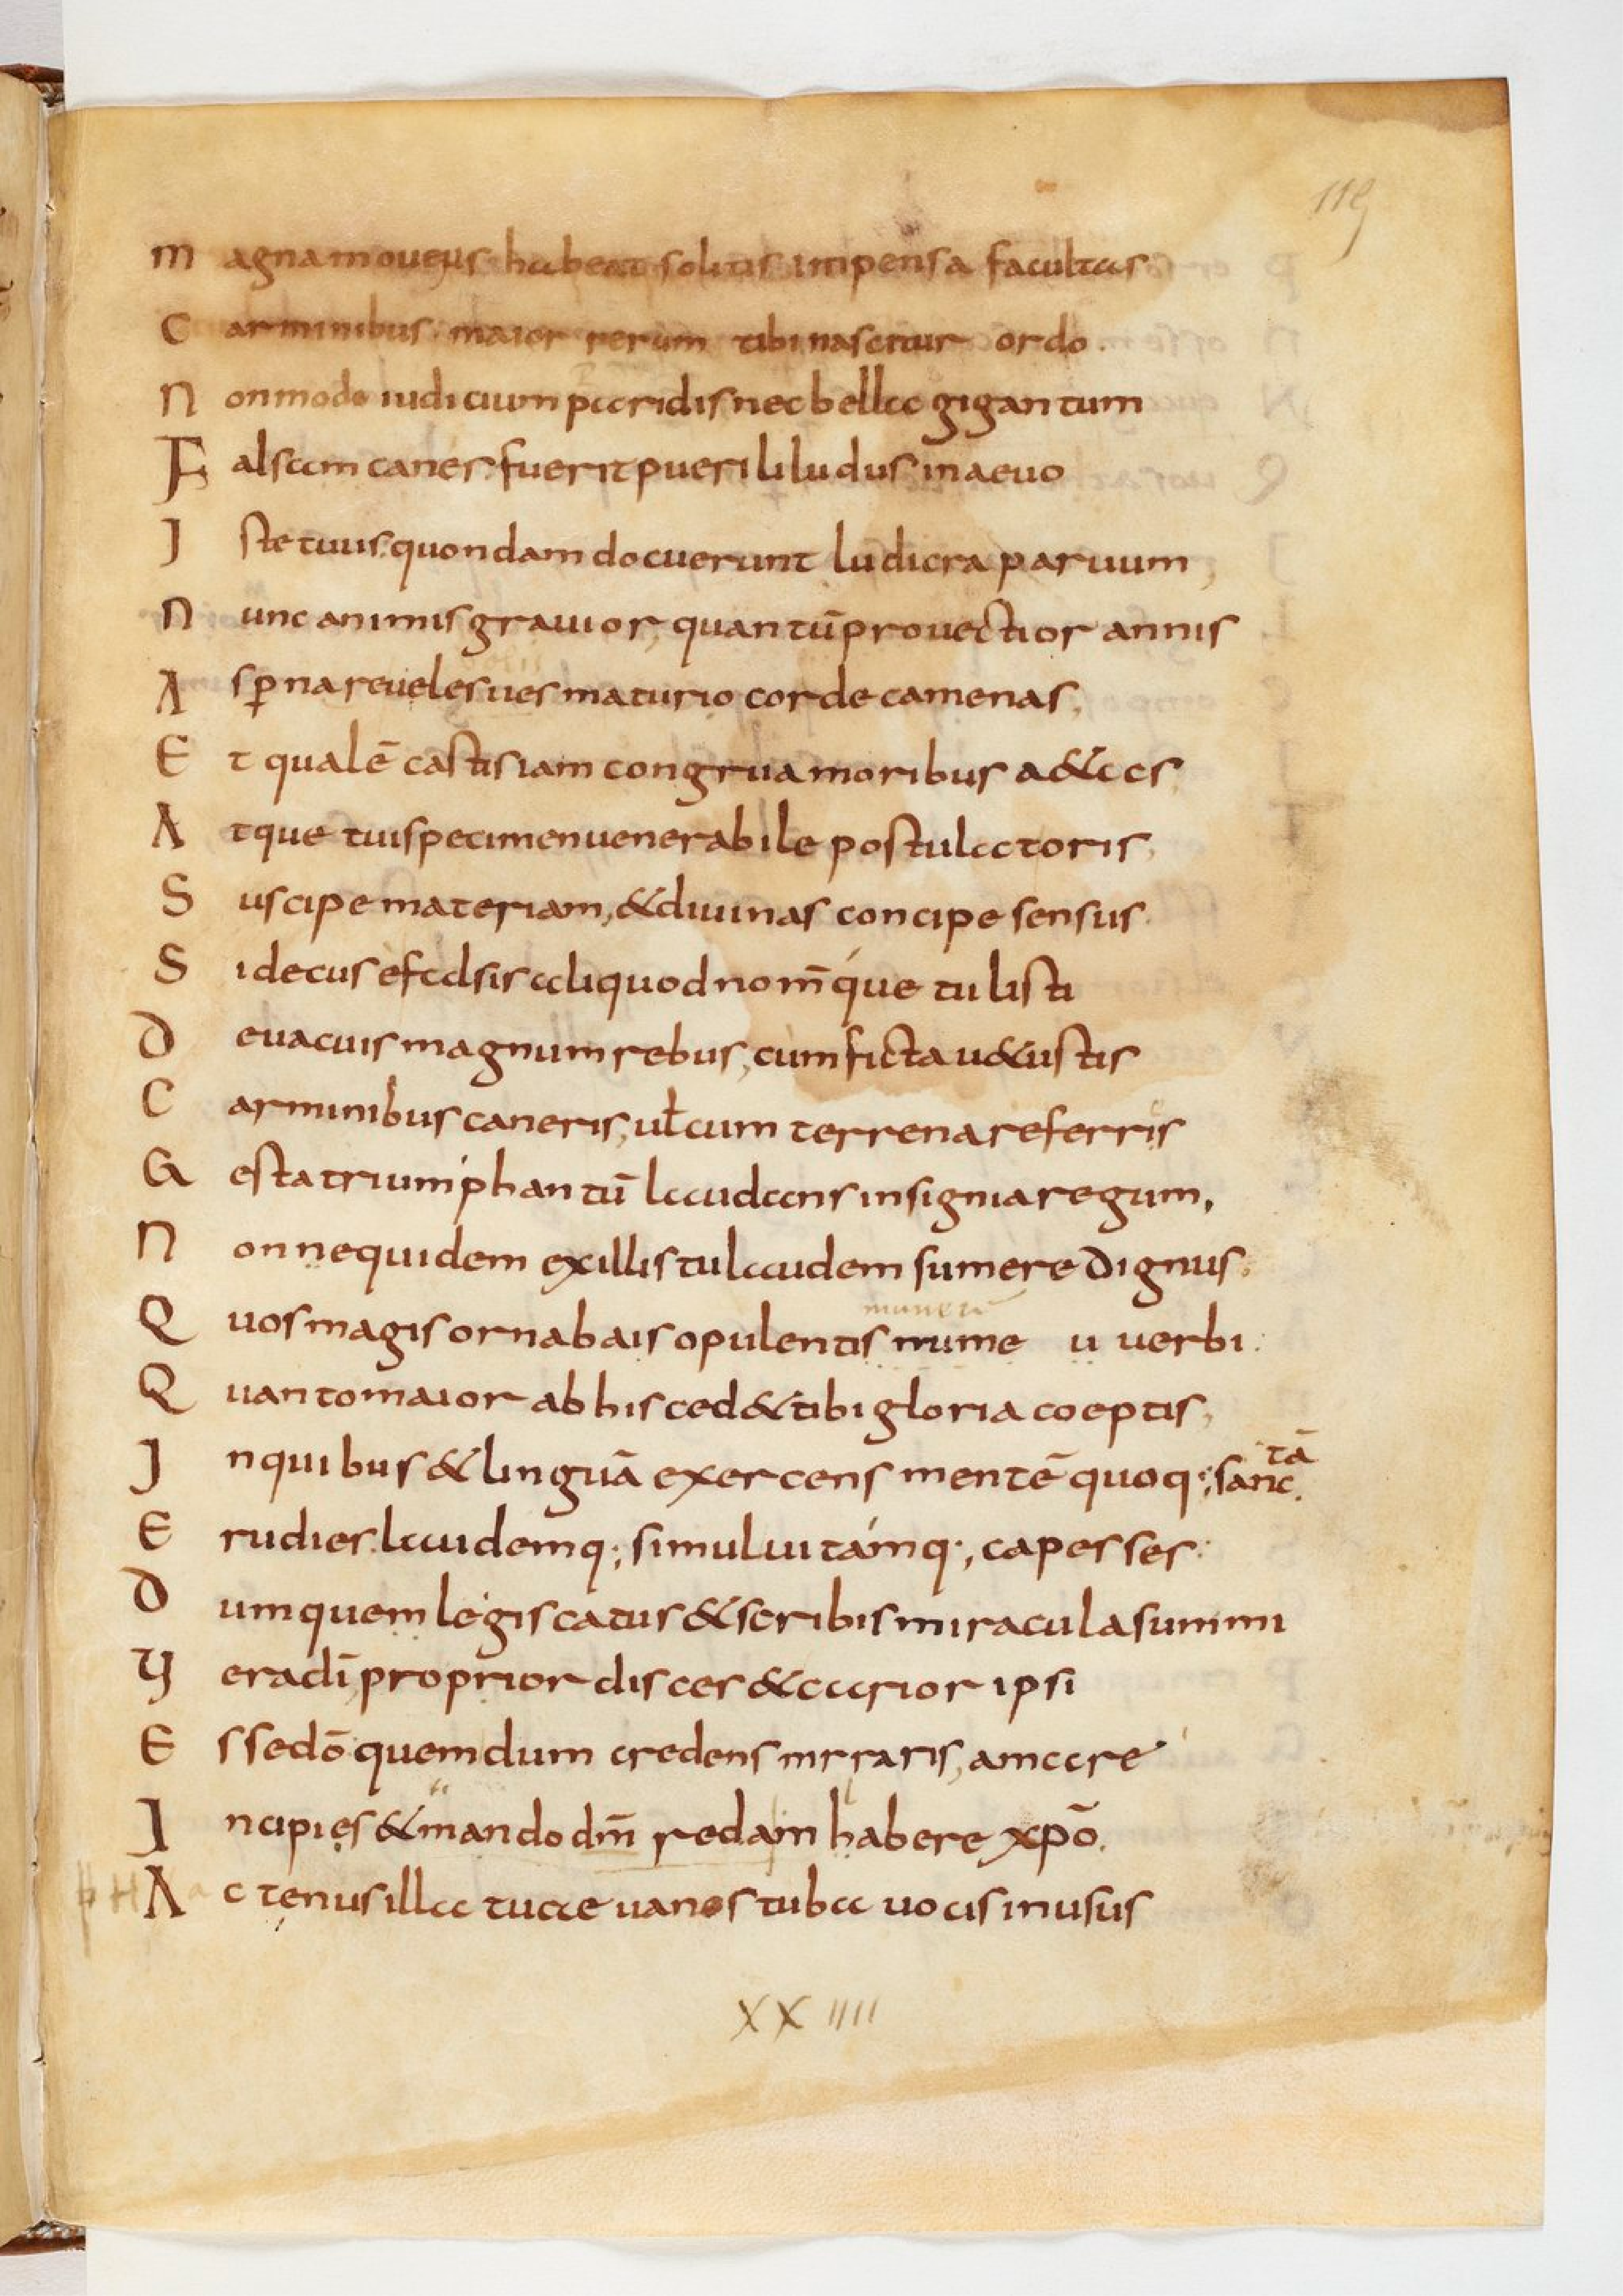 119
Magna moueris habeat solitis impensa facultas
Carminibus maior rerum tibi nascitur ordo.
Non modo iudicium paridis nec bella gigantum
Falsa canes. fuerit puerili ludus in aeuo
Iste tuus. quondam docuerunt ludicra paruum,
Nunc animis grauior, quantū prouectior annis
Asp̱na reueles ues maturio corde camenas,
Et qualē castis iam congrua moribus a&as,
Atque tui specimen uenerabile postulat oris,
Suscipe materiam, & diuinas concipe sensus.
Si decus e fadsis aliquod nom̄que tulisti
De uacuis magnum rebus, cum ficta u&ustis
Carminibus caneris, uł cum terrena referris
Gesta triumphantū laudans insignia regum,
Non nequidem ex illis tu laudem sumere dignus.
munera
Quos magis ornabais opulentis mume u uerbi.
Quanto maior ab his ced& tibi gloria coeptis,
tā
In quibus & linguā exercens mentē quoq; sanc.
Erudies. laudemq; simul uitamq;, capesses.
Dumquem legis catus & scribis miracula summi
Ueradī, proprior disces & carior ipsi
Esse dō quem dum credens mrraris, amare
Incipies & mando dm̄ redam habere xp̄o.
Actenus illa tuae uanos tuba uocis in usus
XXIIII